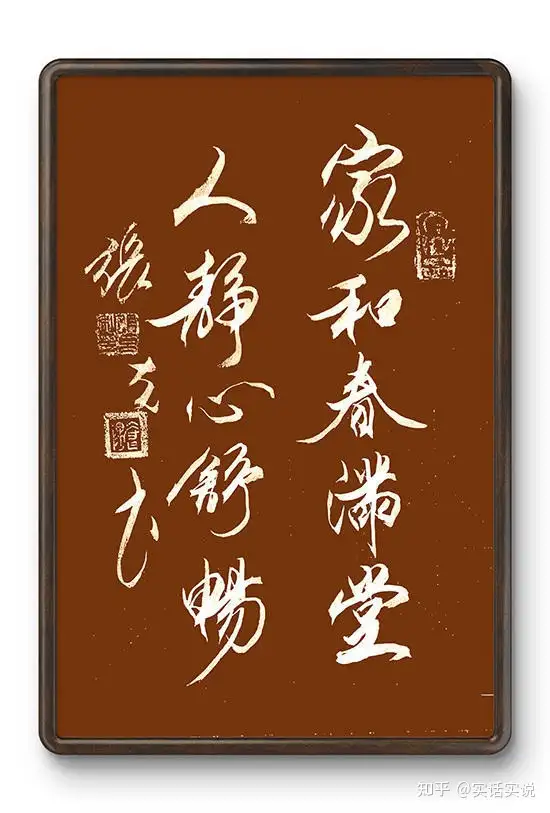 家和春满堂
人靜心舒暢
張克书
知乎 @实话实说